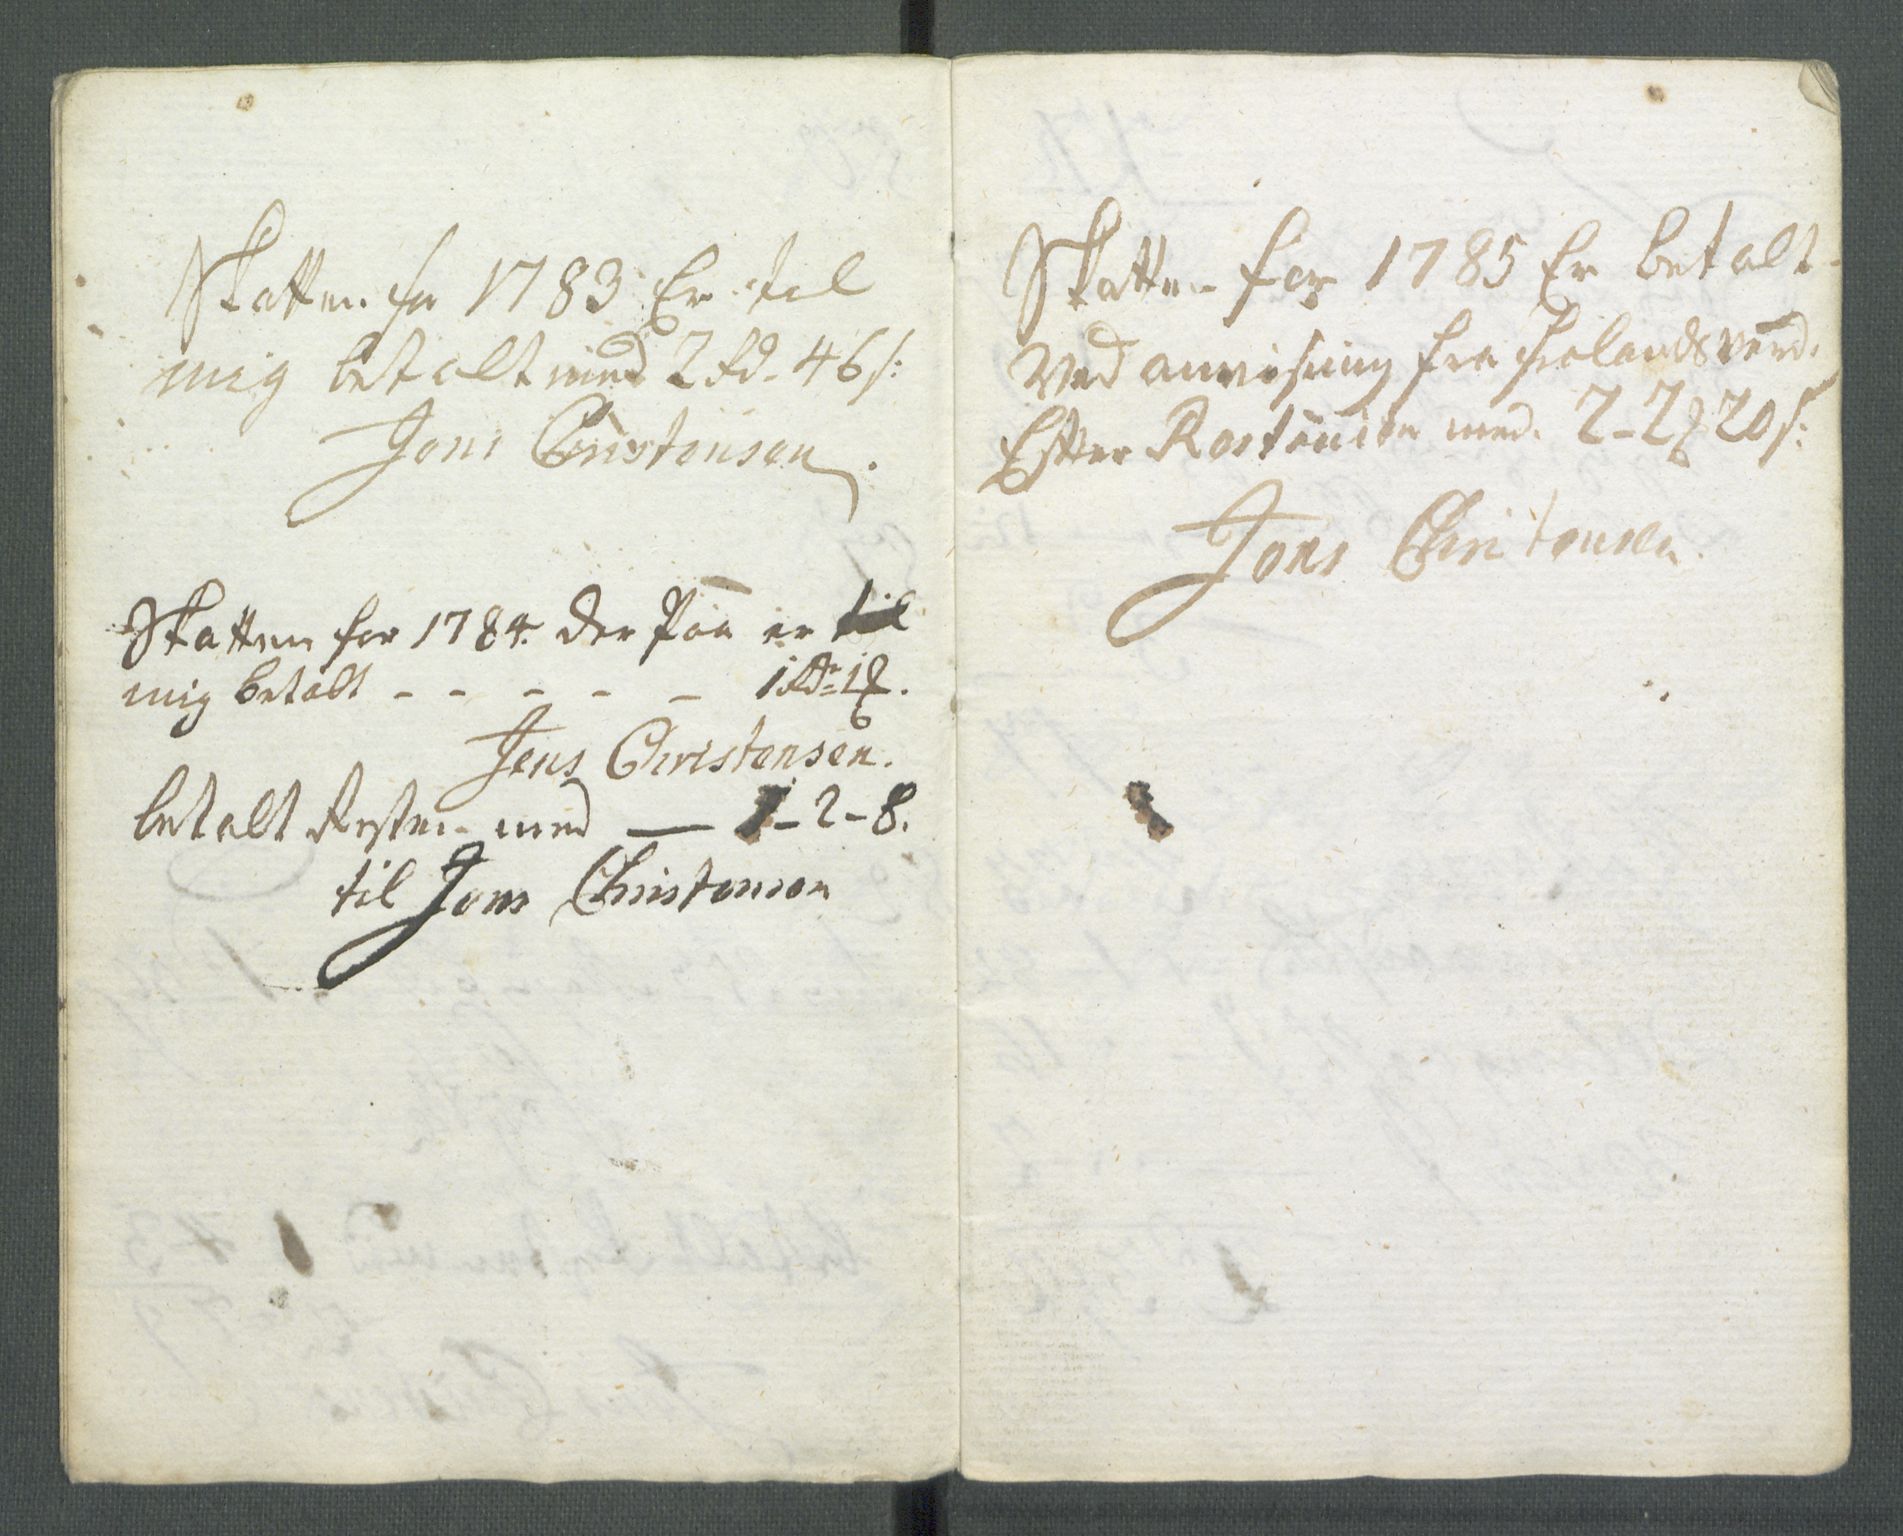 Skatten for 1783 Er til
mig betalt med 2 Rd. 46 s:
Jens Christensen.
Skatten for 1784. der paa er til
mig betalt - - - - - 1 Rd: 1 #.
Jens Christensen.
betalt Resten med — 1 - 2 - 8.
til Jens Christensen
Skatten for 1785 Er betalt
Ved anvisning fra
Efter med. 2 - 2 # 20 s:
Jens Christensen.